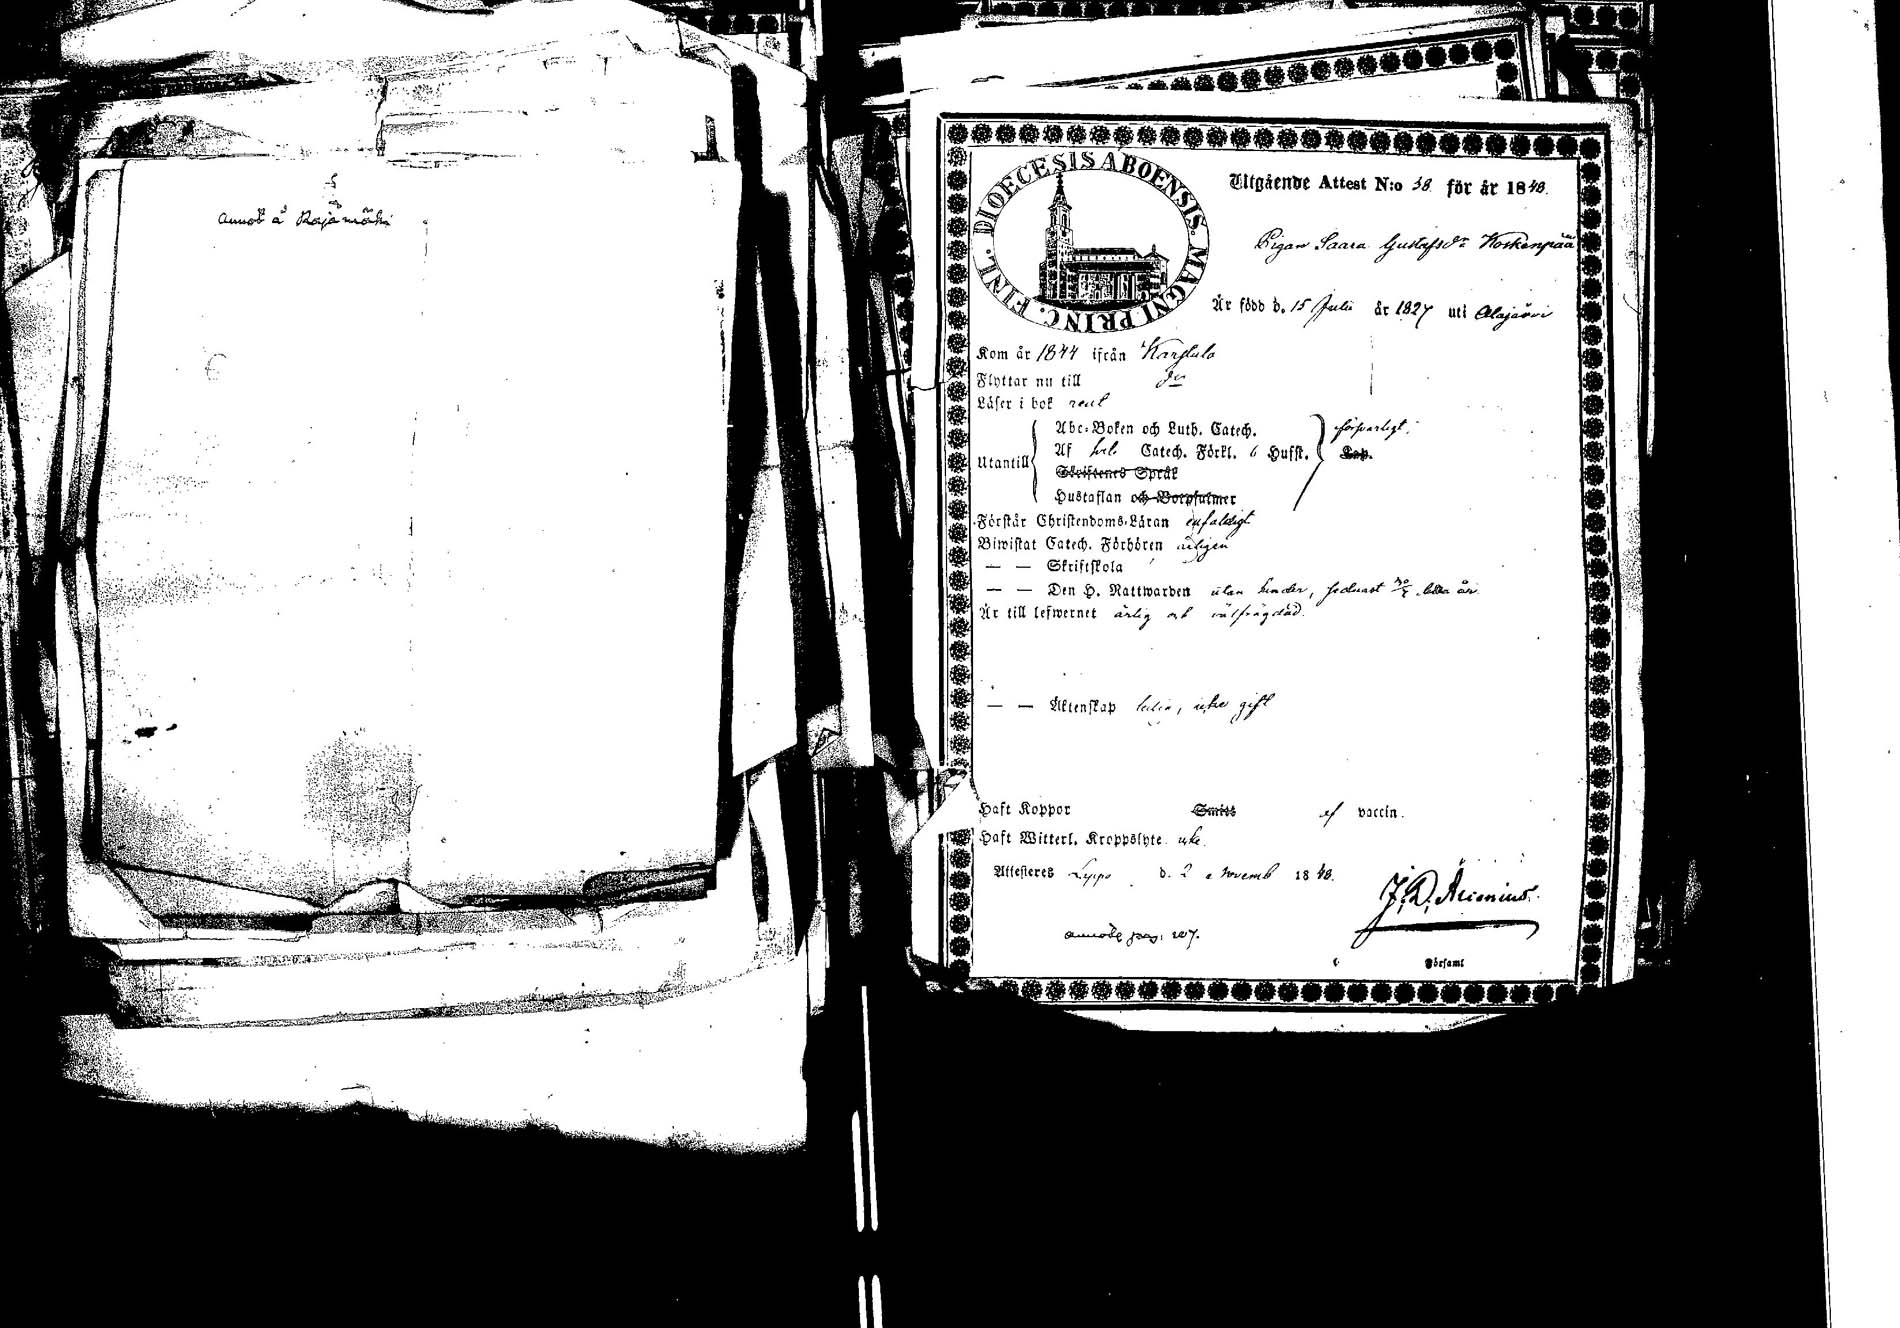 5
annot å Rajamäki
DIOECESIS ABOENSIS. MAGNI PRINC. FINL.
Utgående Attest N:o 38 för år 1848.
Pigan Saara Gustafsdr Koskenpää
Är född d. 15 Julii år 1827 uti Alajärvi
Kom år 1844 ifrån Karstula
Flyttar nu till do
Läser i bok rent
Utantill
Abc-Boken och Luth. Catech.
Af hela Catech. Förkl. 6 Hufst.
försvarligt.
Skriftenes Språk
Hustaflan och Botpsalmer
Förstår Christendoms-Läran enfaldigt
Biwistat Catech. Förhören årligen
— — Skriftskola
— — Den H. Nattwarden utan hinder, sednast 30/7 detta år.
Är till lefwernet ärlig och välfrägdad.
— — Äktenskap ledig, icke gift
Haft Koppor Smitt af vaccin.
Haft Witterl. Kroppslyte icke.
Attesteres d. 2 Novemb 1848.
annot. pag. 207.
Församl